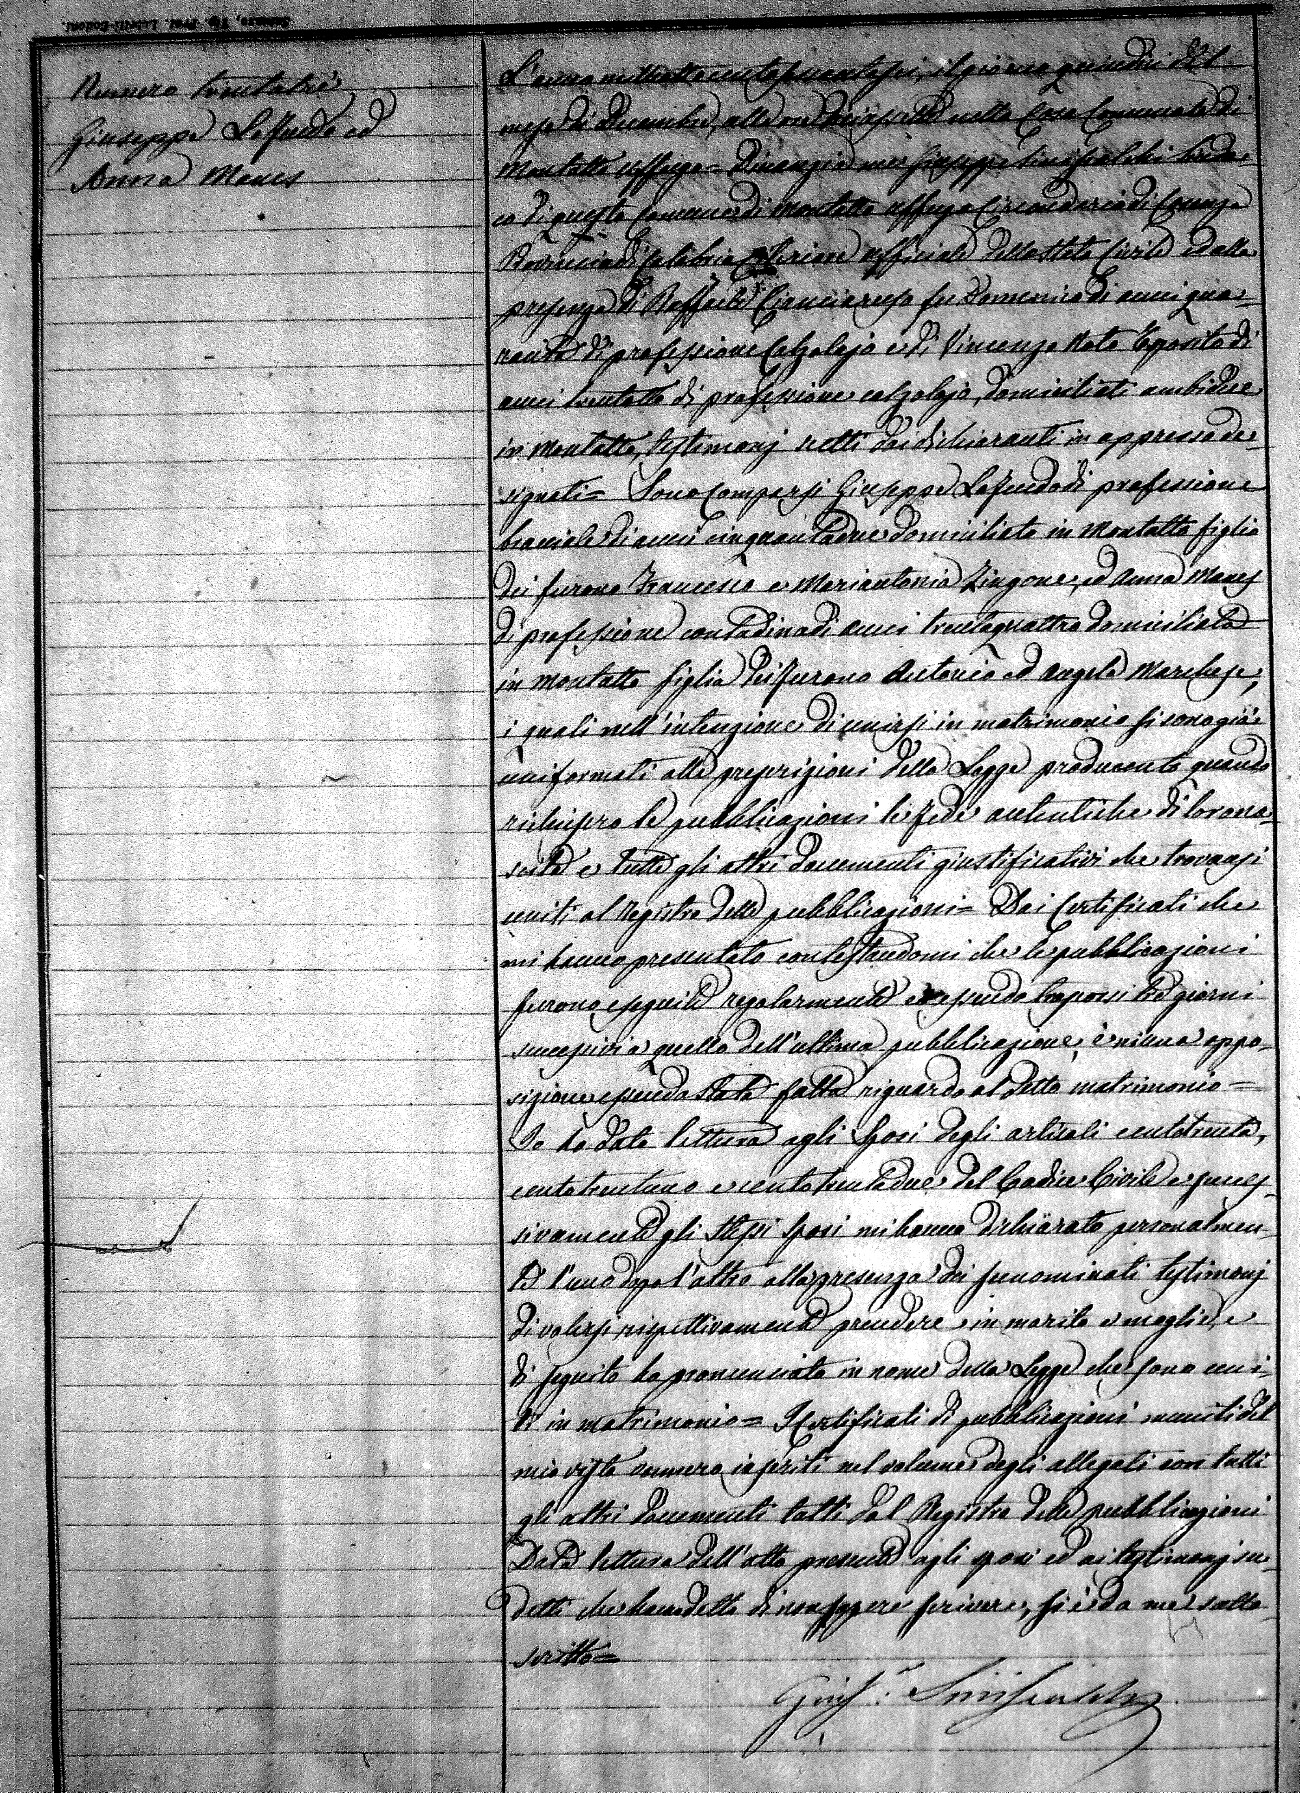 Numero trentatré
Giuseppe Lo Feudo ed
Anna Manes
L'anno milleottocentosessantasei, il giorno quindici del
mese di Dicembre, alle ore diciassette nella Casa Comunale di
Montalto Uffugo = Dinanzi a me Giuseppe Sinischalchi Sinda-
co di questo Comune di Montalto Uffugo Circondario di Cosenza
Provincia di Calabria Citeriore Ufficiale dello Stato Civile ed alla
presenza di Raffaele Cianciaruso fu Domenico di anni qua-
ranta di professione Calzolajo e di Vincenzo Nato Esposito di
anni trentotto di professione calzolajo, domiciliati ambidue
in Montalto, testimonj scelti dai dichiaranti in appresso de-
signati = Sono comparsi Giuseppe Lo Feudo di professione
bracciale di anni cinquantadue domiciliato in Montalto figlio
dei furono Francesco e Mariantonia Zingone, ed Anna Manes
di professione contadina di anni trentaquattro domiciliata
in Montalto figlia dei furono Antonio ed Angela Marchese,
i quali nell'intenzione di unirsi in matrimonio si sono già
uniformati alle prescrizioni della Legge producento quando
richiesero le pubblicazioni le fede autentiche di loro na-
scita e tutte gli altri documenti giustificativi che trovansi
uniti al Registro delle pubblicazioni = Dai Certificati che
mi hanno presentato contestandomi che le pubblicazioni
furono eseguite regolarmente ed essendo trascorsi tre giorni
successivi a quello dell'ultima pubblicazione, è niuna oppo-
sizione essendo stata fatta riguardo al detto matrimonio =
Io ho dato lettura agli Sposi degli articoli centotrenta,
centotrentuno e centotrentadue del Codice Civile e succes-
sivamente gli stessi sposi mi hanno dichiarato personalmen-
te l'uno dopo l'altro alla presenza dei sunominati testimonj
di volersi rispettivamente prendere in marito e moglie, e
di seguito ho pronunciato in nome della Legge che sono uni-
ti in matrimonio = I Certificati di pubblicazioni muniti del
mio visto vennero inseriti nel volume degli allegati con tutti
gli altri documenti tolti dal Registro delle pubblicazioni
Data lettura dell'atto presente agli sposi ed ai testimonj su-
detti che hanno detto di non sapere scrivere, si è da me sotto-
scritto =